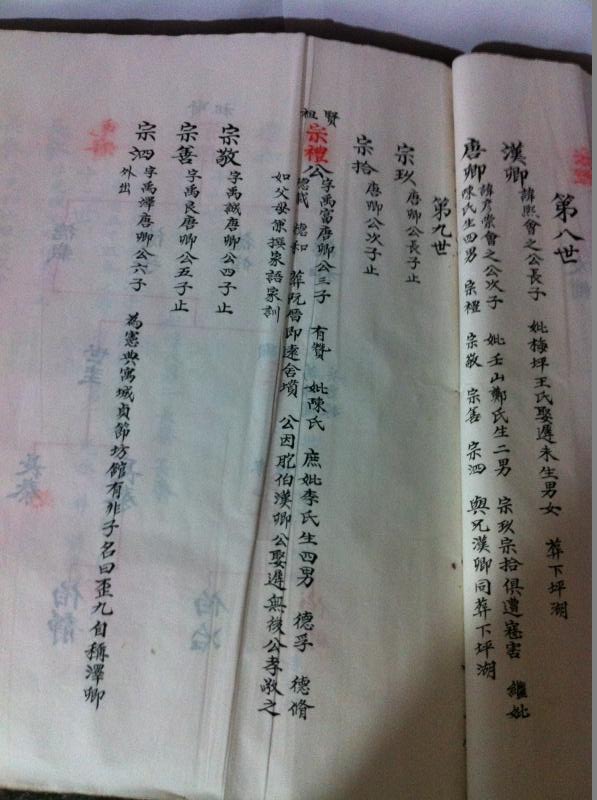 第八世
漢卿 諱熙會之公長子 妣梅坪王氏娶遲未生男女 葬下坪湖
唐卿 諱彥崇會之公次子 妣壬山鄭氏生二男 宗玖宗拾俱遭寇害 繼妣
陳氏生四男 宗禮 宗敬 宗善 宗泗 與兄漢卿同葬下坪湖
第九世
宗玖 唐卿公長子止
宗拾 唐卿公次子止
賢祖
宗禮公 字禹富唐卿公三子 有贊 妣陳氏 庶妣李氏生四男 德孚 德脩
德和 葬阮厝即遠舍墳 公因胞伯漢卿公娶遲無後公孝敬之
如父母 撰家語家訓
宗敬 字禹誠唐卿公四子止
宗善 字禹良唐卿公五子止
宗泗 字禹繹唐卿公六子 為憲典寓城貞節坊館有非子名曰歪九自稱澤卿
外出